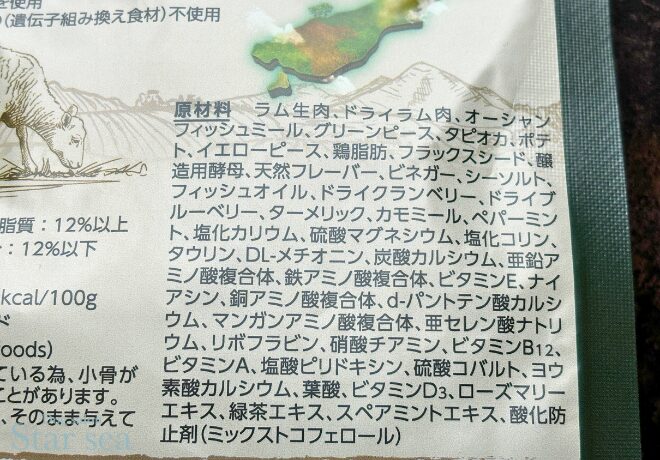 を使用
(遺伝子組み換え食材)不使用
原材料 ラム生肉、ドライラム肉、オーシャン
フィッシュミール、グリーンピース、タピオカ、ポテ
ト、イエローピース、鶏脂肪、フラックスシード、醸
造用酵母、天然フレーバー、ビネガー、シーソルト、
フィッシュオイル、ドライクランベリー、ドライブ
ルーベリー、ターメリック、カモミール、ペパーミン
ト、塩化カリウム、硫酸マグネシウム、塩化コリン、
タウリン、DL-メチオニン、炭酸カルシウム、亜鉛ア
ミノ酸複合体、鉄アミノ酸複合体、ビタミンE、ナイ
アシン、銅アミノ酸複合体、d-パントテン酸カルシ
ウム、マンガンアミノ酸複合体、亜セレン酸ナトリ
ウム、リボフラビン、硝酸チアミン、ビタミンB12、
ビタミンA、塩酸ピリドキシン、硫酸コバルト、ヨウ
素酸カルシウム、葉酸、ビタミンD3、ローズマリー
エキス、緑茶エキス、スペアミントエキス、酸化防
止剤(ミックストコフェロール)
脂質:12%以上
:12%以下
kcal/100g
ド
foods)
ている為、小骨が
ことがあります。
、そのまま与えて
Star sea